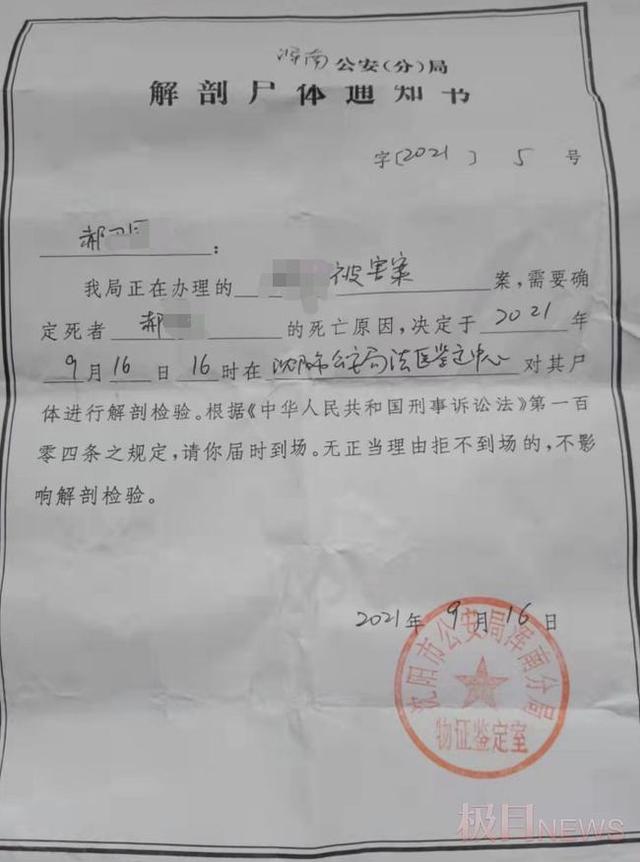 浑南公安(分)局
解剖尸体通知书
字〔2021〕 5 号
郝 :
我局正在办理的 被害案 案,需要确
定死者 郝 的死亡原因,决定于 2021 年
9 月 16 日 16 时在 沈阳市公安局法医鉴定中心 对其尸
体进行解剖检验。根据《中华人民共和国刑事诉讼法》第一百
零四条之规定,请你届时到场。无正当理由拒不到场的,不影
响解剖检验。
2021年 9 月 16 日
沈阳市公安局浑南分局
物证鉴定室
极目NEWS